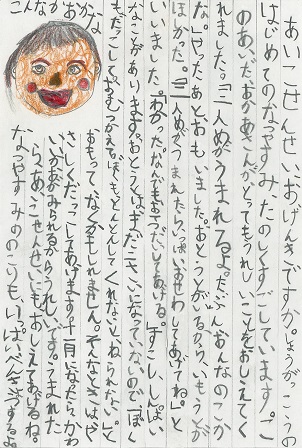 あいこせんせい、おげんきですか。しょうがっこう
はじめてのなつやすみ、たのしくすごしています。こ
のあいだおかあさんが、とってもうれしいことをおしえてく
れました。「三人めがうまれるよ。」たぶんおんなのこか
な。やったあとおもいました。おとうとがいるから、いもうとが
ほしかった。「三人めがうまれたら、いっぱいおせわしてあげてね。」と
いいました。「わかった。なんでもおてつだいしてあげる。」すこし、しんぱい
なことがあります。おとうとはまだ二さいになっていないのでぼく
もだっこして、おむつかえる。ぼくもとんとんしてくれないとねられない。」と
おもって、なくかもしれません。そんなときはや
さしくだっこしてあげます。十一月になったら、かわ
いいおかおみられるからうれしいです。うまれた
ら、あいこせんせいにもおしえてあげるね。
なつやすみののこりも、いっぱいべんきょうするよ。
こんなかおかな